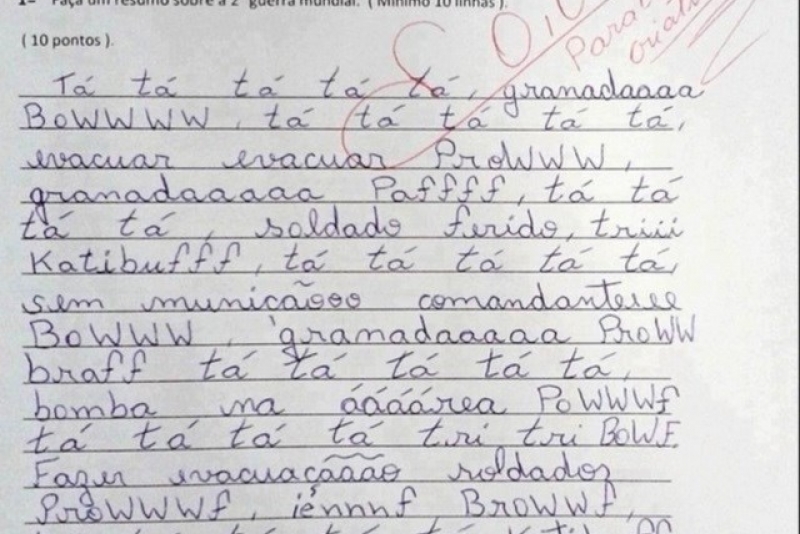 1- Faça um resumo sobre a 2ª guerra mundial. ( Mínimo 10 linhas ).
( 10 pontos ).
0,0
Tá tá tá tá tá, granadaaaa
BOWWWW, tá tá tá tá tá,
evacuar evacuar PROWWW,
granadaaaaa Paffff, tá tá
tá tá, soldado ferido, triiii
Katibufff, tá tá tá tá tá,
sem municãooo comandanteeee
BOWWW, granadaaaaa PROWW
braff tá tá tá tá tá,
bomba na áááárea POWWWf
tá tá tá tá tri tri BOWF.
Fazer evacuaçãããão soldados
PROWWWf, iénnnf BROWWf,